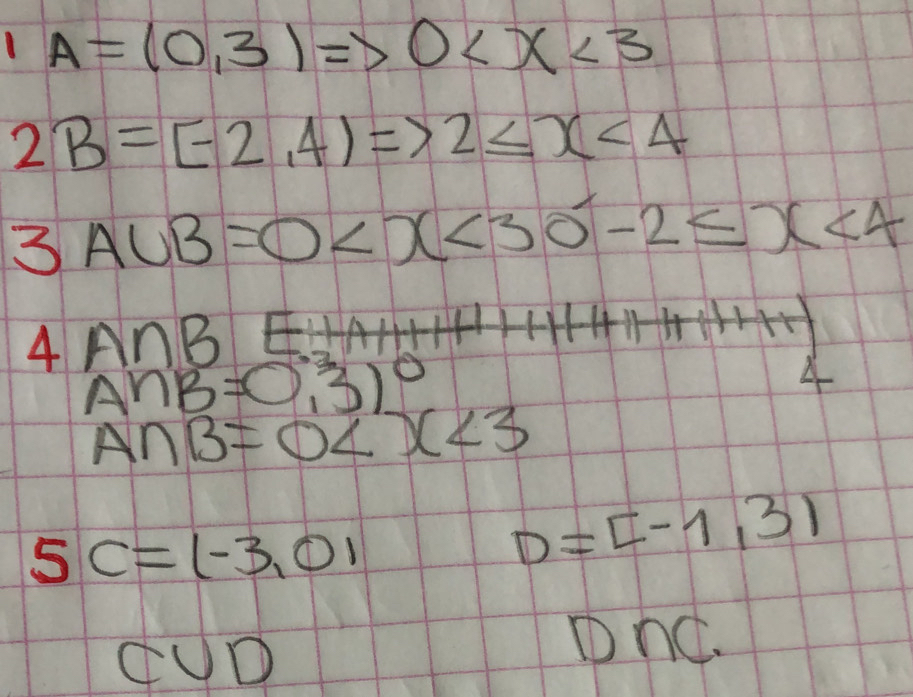 1 A = (0,3) => 0 < x < 3
2 B = [-2,4) => 2 ≤ x < 4
3 A∪B = 0 < x < 3 ó -2 ≤ x < 4
4 A∩B [
4
A∩B = 0,3) 0
A∩B = 0 < x < 3
5 C = (-3,0) D = [-1,3)
C∪D D∩C